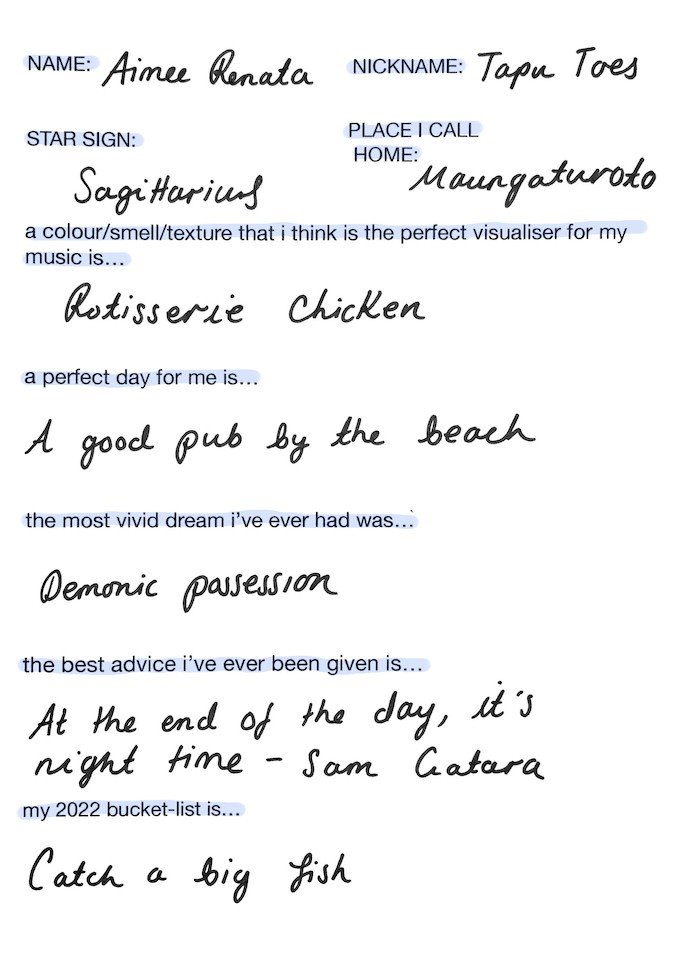 NAME: Aimee Renata NICKNAME: Tapu Toes
STAR SIGN: PLACE I CALL
HOME:
Sagittarius Maungaturoto
a colour/smell/texture that i think is the perfect visualiser for my
music is...
Rotisserie Chicken
a perfect day for me is...
A good pub by the beach
the most vivid dream i've ever had was...
Demonic possession
the best advice i've ever been given is...
At the end of the day, it's
night time - Sam Catara
my 2022 bucket-list is...
Catch a big fish